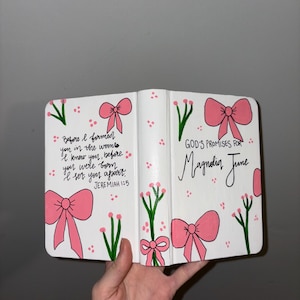 Before I formed
you in the womb
I knew you, before
you were born
I set you apart.
JEREMIAH 1:5
GOD'S PROMISES FOR
Magnolia June